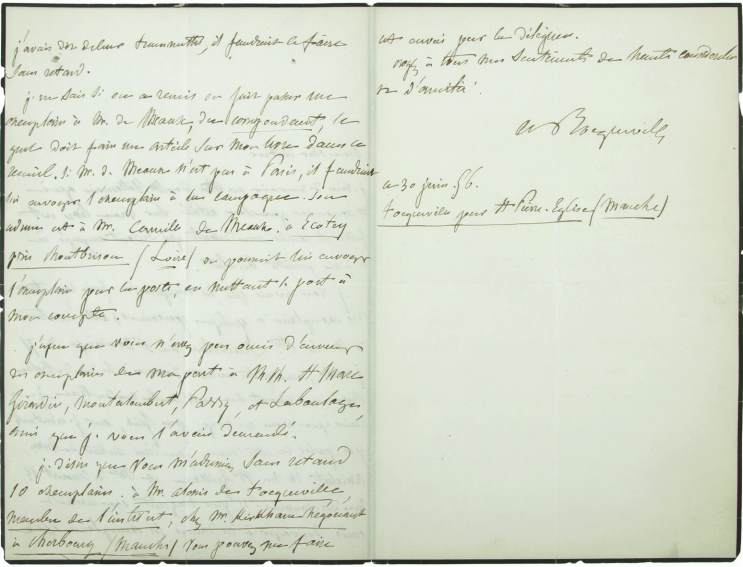 j'avais de deleur transmettre, il faudrait le faire
sans retard.
je ne sais si on a remis ou fait passer un
exemplaire à Mr. de Meaux, du correspondant, le
quel doit faire un article sur mon livre dans ce
recueil. Si M. de Meaux n'est pas à Paris, il faudrait
lui envoyer l'exemplaire à la campagne. Son
adresse est à Mr. Camille de Meaux, à Ecotay
près Montbrison (Loire) on pourrait lui envoyer
l'exemplaire par la poste, en mettant le port à
mon compte.
j'espère que vous n'avez pas omis d'envoyer
des exemplaires de ma part à MM. St Marc
Girardin, Montalembert, Passy, et Laboulaye,
ainsi que je vous l'avais demandé.
je désire que vous m'adressiez sans retard
10 exemplaires à Mr. alexis de tocqueville,
membre de l'institut, chez Mr. Kirkham négociant
à cherbourg (Manche) vous pouvez me faire
cet envoi par la diligence.
à tous mes sentiments de haute considération
et d'amitié.
A de Tocqueville
ce 30 juin 56.
tocqueville par St Pierre-Eglise (Manche)